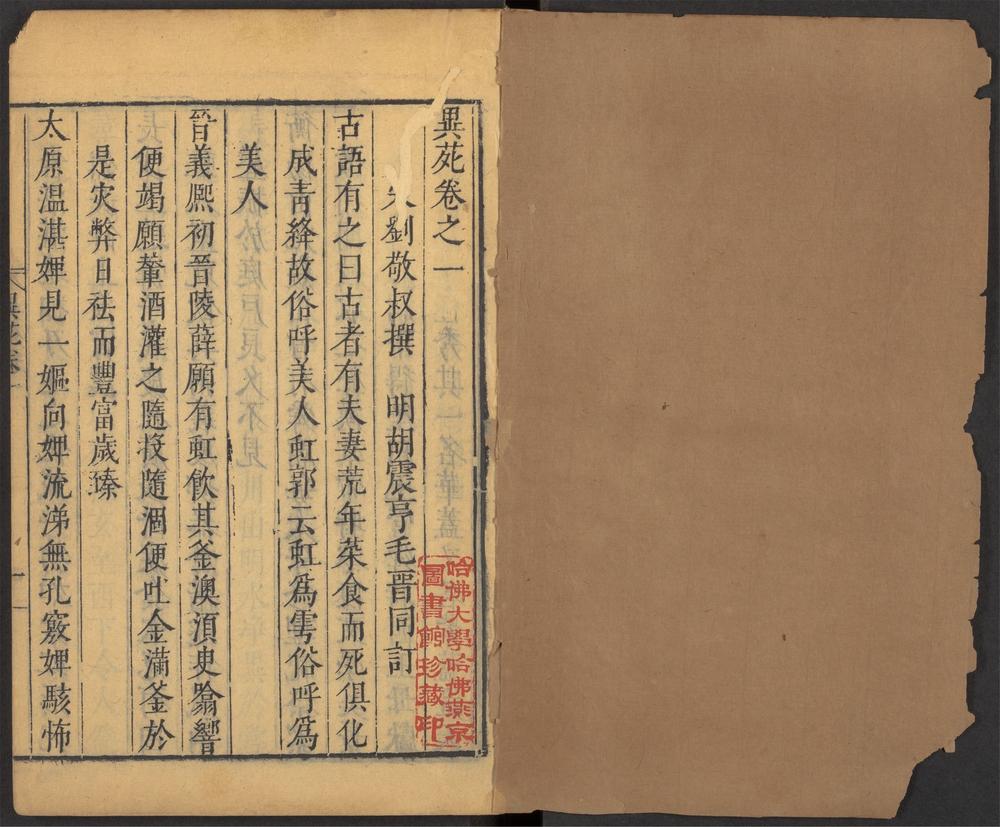 異苑卷之一
宋劉敬叔撰 明胡震亨毛晉同訂
古語有之曰古者有夫妻荒年菜食而死俱化
成青絳故俗呼美人虹郭云虹爲雩俗呼爲
美人
晉義熈初晉陵薛願有虹飲其釜澳湏臾噏響
便竭願輦酒灌之隨投隨涸便吐金滿釜於
是灾弊日祛而豐富歲臻
太原温湛婢見一嫗向婢流涕無孔竅婢駭怖
異苑卷一
一
哈佛大學哈佛燕京
圖書館珍藏印